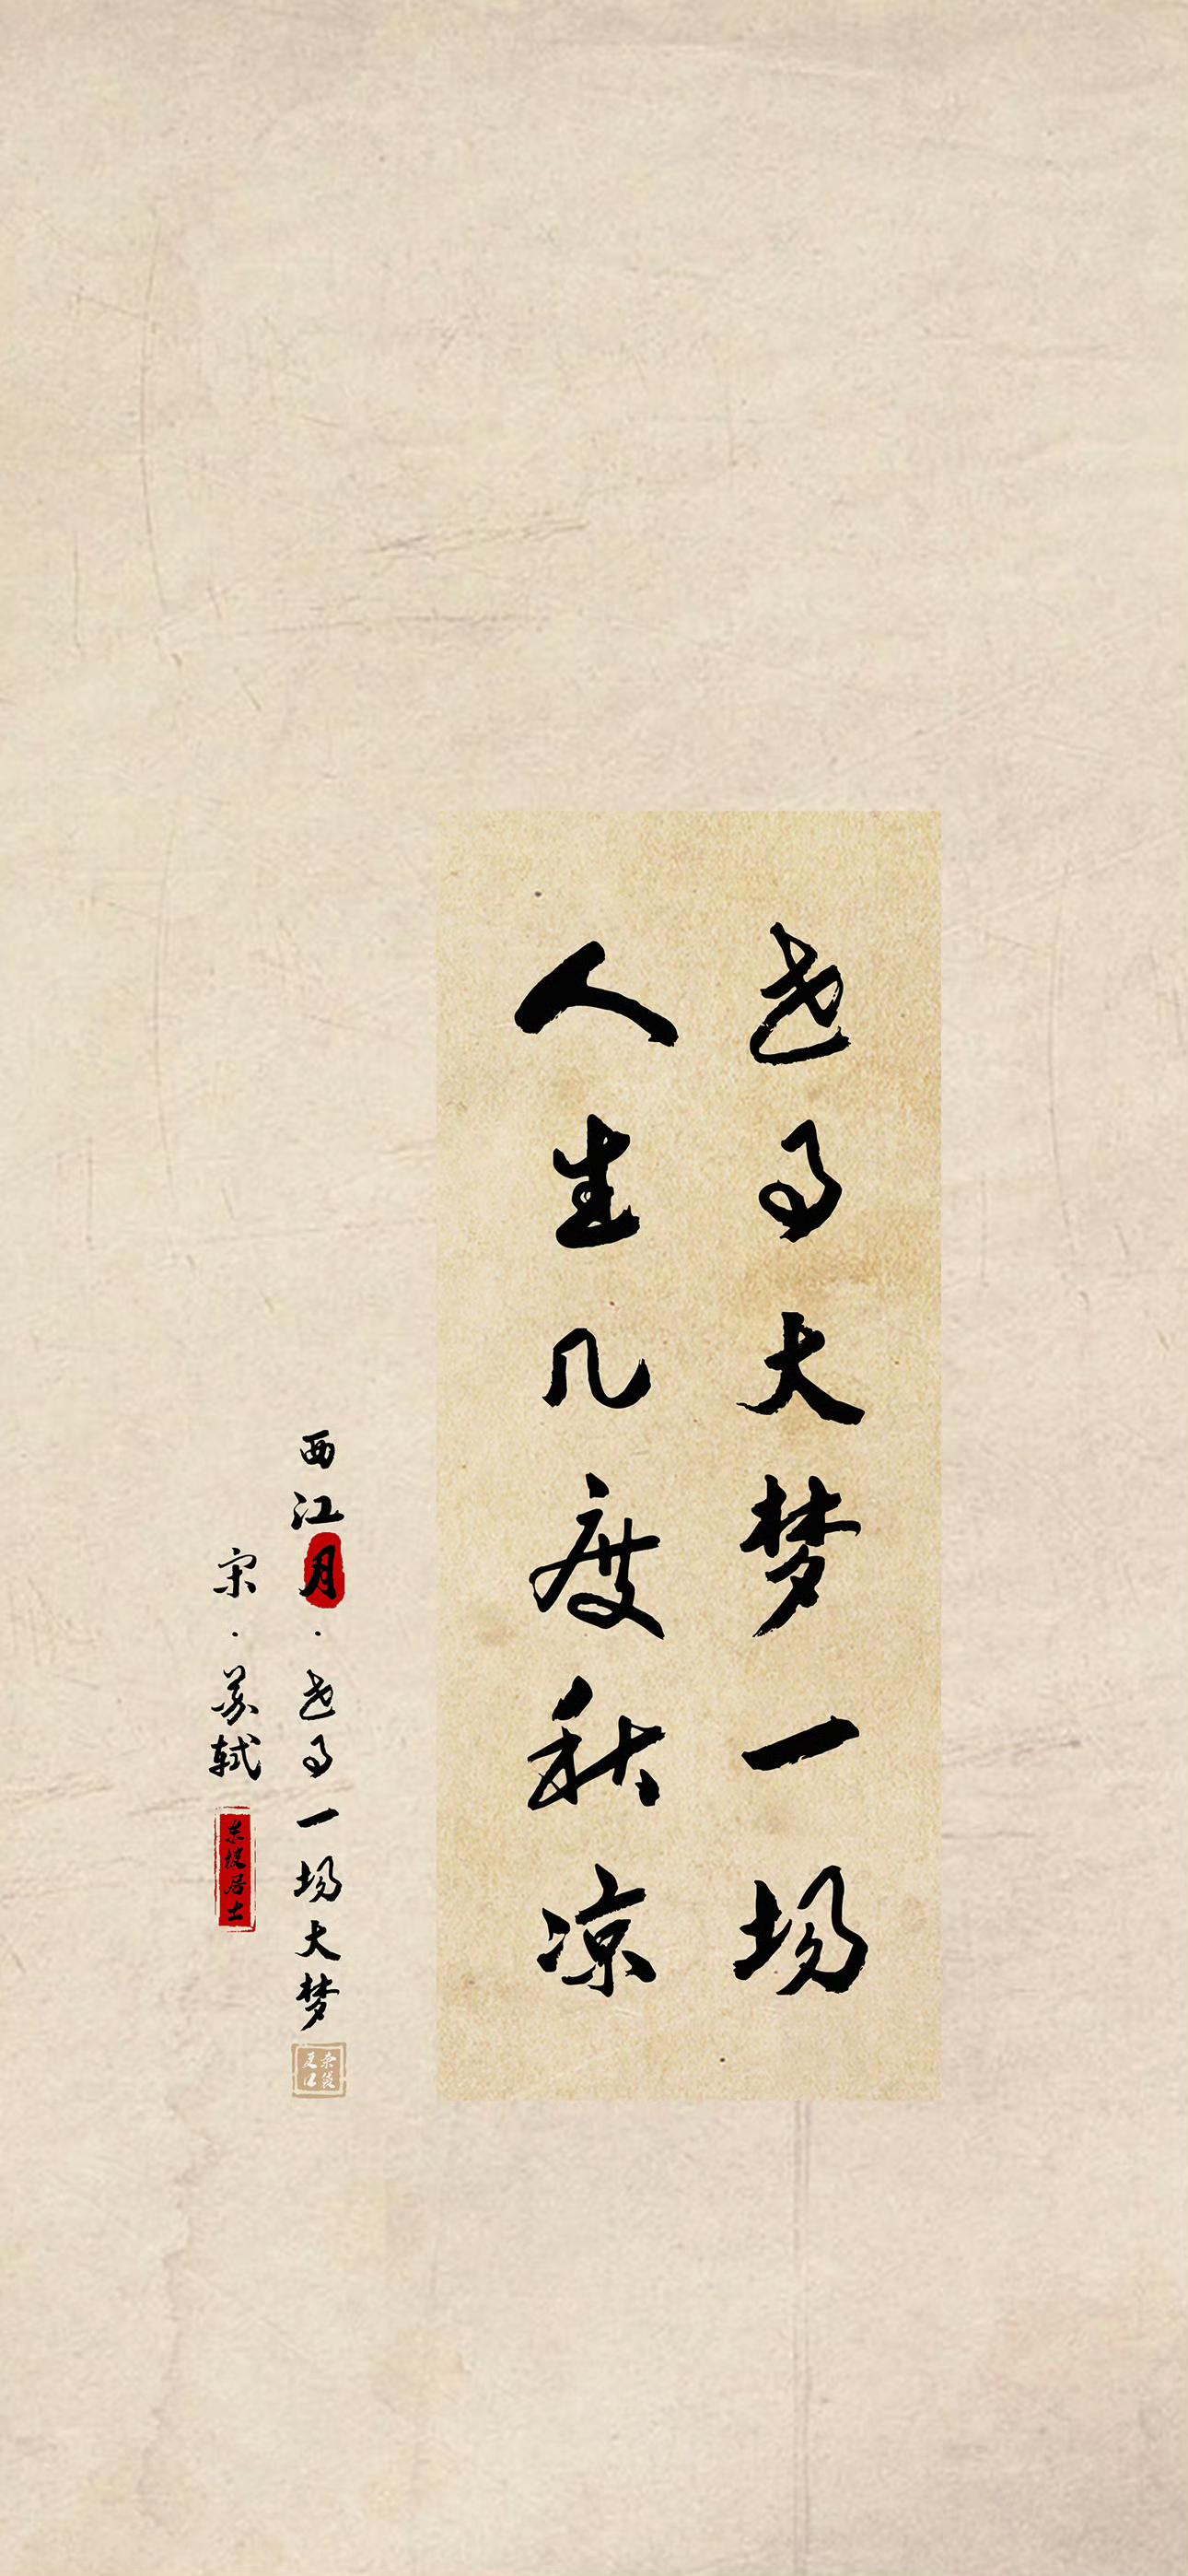 世事大梦一场
人生几度秋凉
西江月·世事一场大梦
宋·苏轼
东坡居士